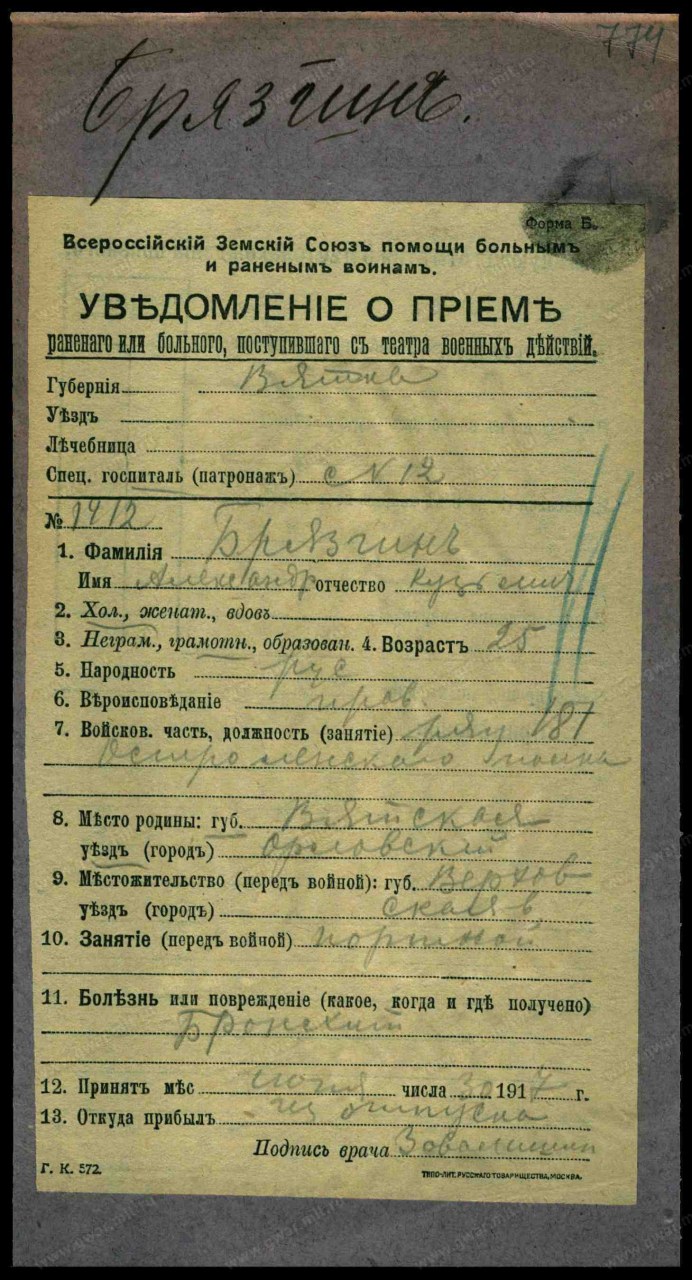 774
Брязгинъ.
Форма Б.
Всероссійскій Земскій Союзъ помощи больнымъ
и раненымъ воинамъ.
УВѢДОМЛЕНІЕ О ПРІЕМѢ
раненаго или больного, поступившаго съ театра военныхъ дѣйствій.
Губернія Вятка
Уѣздъ
Лѣчебница
Спец. госпиталь (патронажъ) с N 12
№ 1412
1. Фамилія Брязгинъ
Имя Александр отчество Кузьмич
2. Хол., женат., вдовъ
3. Неграм., грамотн., образован. 4. Возрастъ 25
5. Народность рус
6. Вѣроисповѣданіе прав.
7. Войсков. часть, должность (занятіе) ряд 181
Остроленскаго полка
8. Мѣсто родины: губ. Вятская
уѣздъ (городъ) Орловскій
9. Мѣстожительство (передъ войной): губ. Верхов
уѣздъ (городъ) ская в.
10. Занятіе (передъ войной) портной
11. Болѣзнь или поврежденіе (какое, когда и гдѣ получено)
Бронхит
12. Принятъ мѣс июня числа 30 1917 г.
13. Откуда прибылъ из отпуска
Подпись врача
Г. К. 572.
ТИПО-ЛИТ. РУССКАГО ТОВАРИЩЕСТВА, МОСКВА.